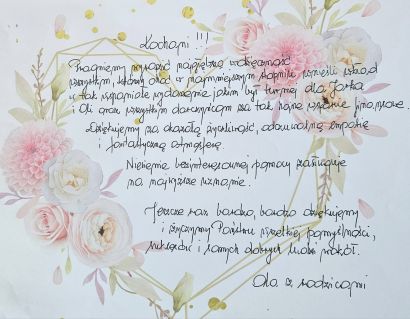 Kochani!!!
Pragniemy wyrazić najgłębszą wdzięczność
wszystkim, którzy choć w najmniejszym stopniu wnieśli wkład
w tak wspaniałe wydarzenie jakim był turniej dla
i Oli oraz wszystkim darczyńcom za tak hojne wsparcie finansowe.
Dziękujemy za okazałą życzliwość, empatię
i fantastyczną atmosferę.
Niesienie bezinteresownej pomocy zasługuje
na najwyższe uznanie.
Jeszcze raz bardzo, bardzo dziękujemy
i życzymy Państwu wszelkiej pomyślności,
sukcesów i samych dobrych ludzi wokół.
Ola z rodzicami